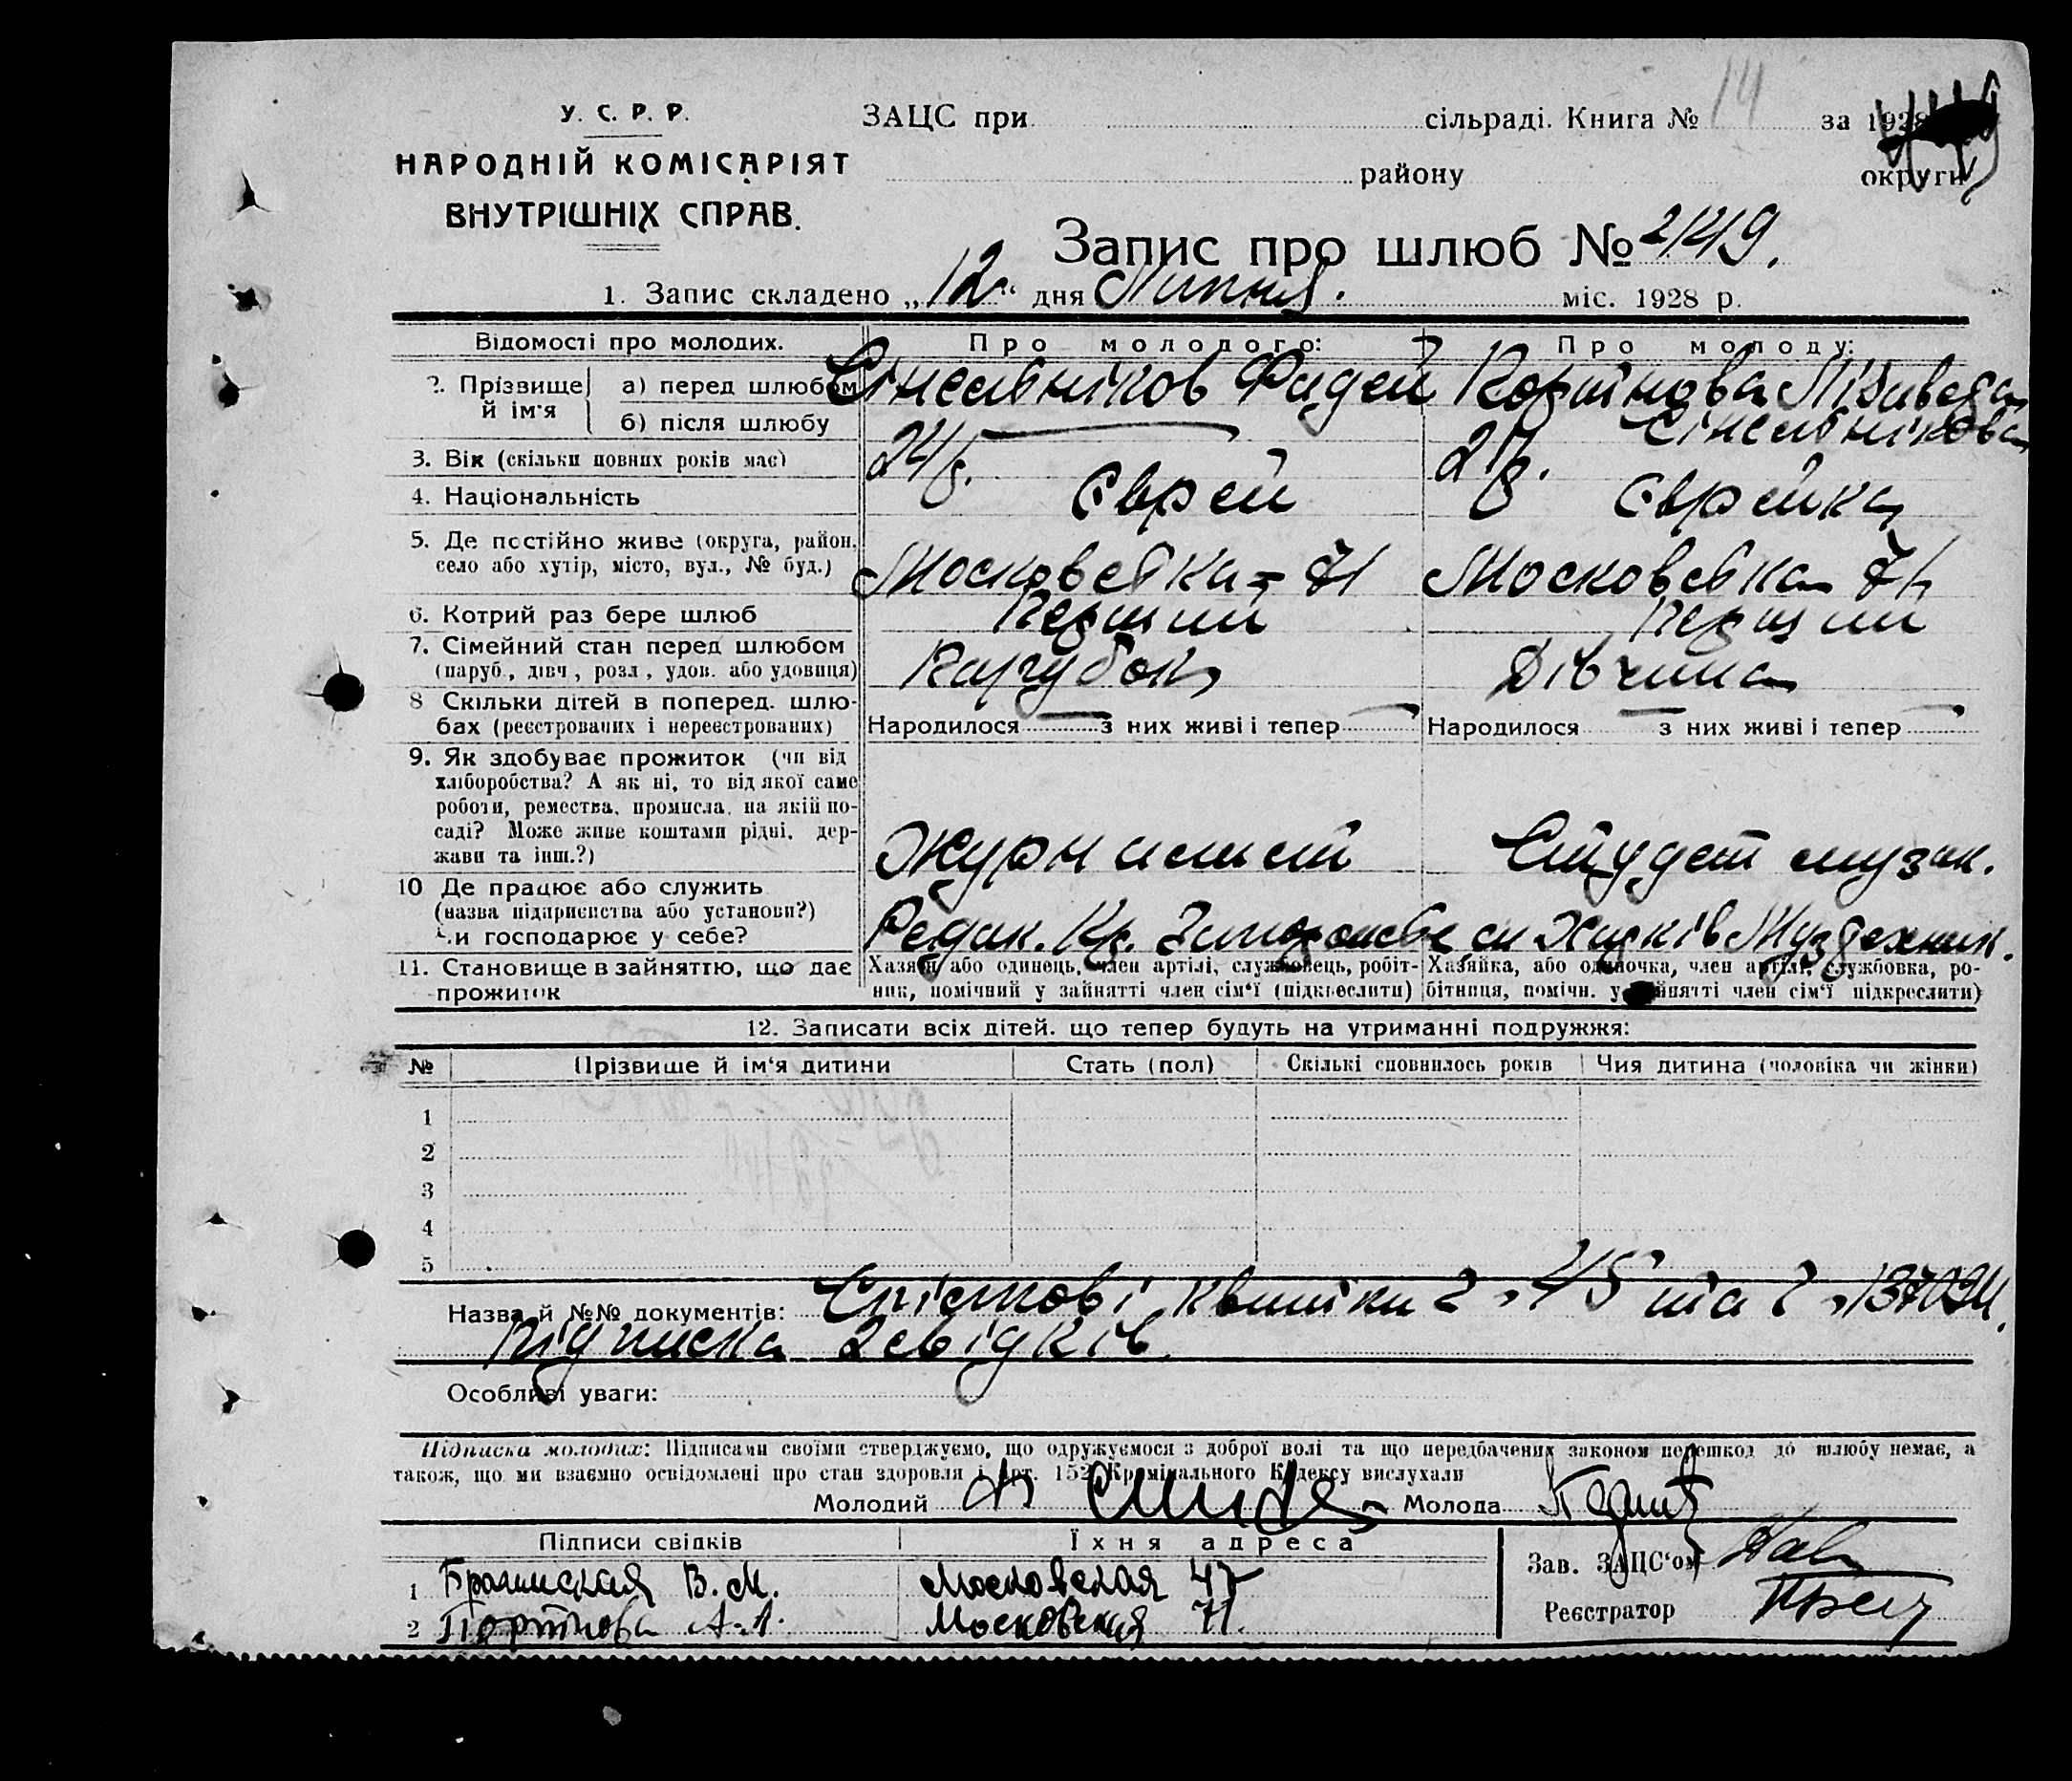 У. С. Р. Р.
НАРОДНІЙ КОМІСАРІЯТ
ВНУТРІШНІХ СПРАВ.
ЗАЦС при сільраді. Книга № 14 за 1928
району округи
Запис про шлюб № 2149.
1. Запис складено „12“ дня Липня. міс. 1928 р.
Відомості про молодих. Про молодого: Про молоду:
2. Прізвище й ім'я
а) перед шлюбом Сінельніков Фадей Портнова Лізаведа
б) після шлюбу — Сінельнікова
3. Вік (скільки повних років має) 24 р. 21 р.
4. Національність Єврей Єврейка
5. Де постійно живе (округа, район, село або хутір, місто, вул., № буд.) Московська 71 Московська 71
6. Котрий раз бере шлюб Перший Перший
7. Сімейний стан перед шлюбом (паруб., дівч., розл., удов. або удовиця) Парубок Дівчина
8 Скільки дітей в поперед. шлюбах (реєстрованих і нереєстрованих) Народилося — з них живі і тепер — Народилося — з них живі і тепер —
9. Як здобуває прожиток (чи від
хліборобства? А як ні, то від якої саме
роботи, ремества, промисла, на якій по-
саді? Може живе коштами рідні, дер-
жави та інш.?) Журналист Студент музик.
10 Де працює або служить
(назва підприємства або установи?)
Чи господарює у себе? Редак. Харків Музтехник.
11. Становище в зайняттю, що дає прожиток
Хазяїн або одинець, член артілі, службовець, робіт-
ник, помічний у зайнятті член сім'ї (підкреслити)
Хазяйка, або одиночка, член артілі, службовка, ро-
бітниця, помічн. у зайнятті член сім'ї підкреслити)
12. Записати всіх дітей, що тепер будуть на утриманні подружжя:
№ Прізвище й ім'я дитини Стать (пол) Скількі сповнилось років Чия дитина (чоловіка чи жінки)
1
2
3
4
5
Назва й №№ документів: квитки 45 та 137094.
Підписка 2 свідків
Особливі уваги:
Підписка молодих: Підписами своїми стверджуємо, що одружуємося з доброї волі та що передбачених законом перешкод до шлюбу немає, а
також, що ми взаємно освідомлені про стан здоровля і арт. 152 Кримінального Кодексу вислухали
Молодий Молода
Підписи свідків Їхня адреса
1 В. М. Московская 47
2 Портнова А. Московская 71.
Зав. ЗАЦС'ом
Реєстратор